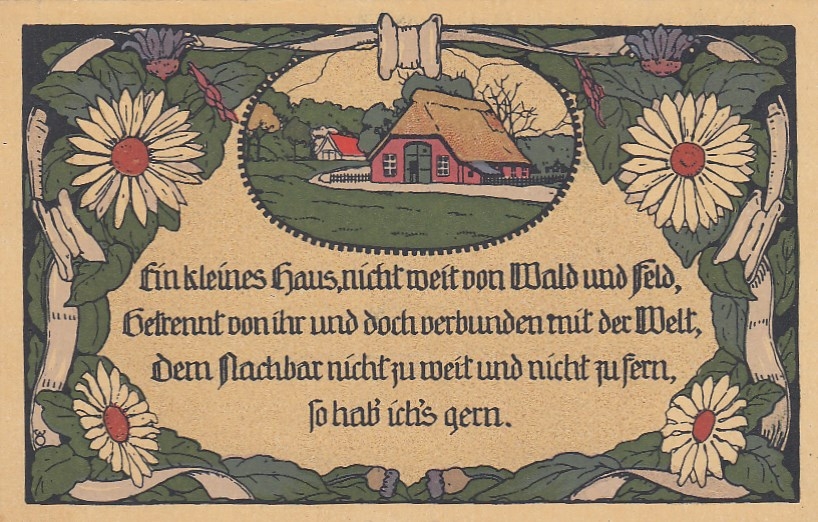 Ein kleines Haus, nicht weit von Wald und Feld,
Getrennt von ihr und doch verbunden mit der Welt,
Dem Nachbar nicht zu weit und nicht zu fern,
so hab' ich's gern.